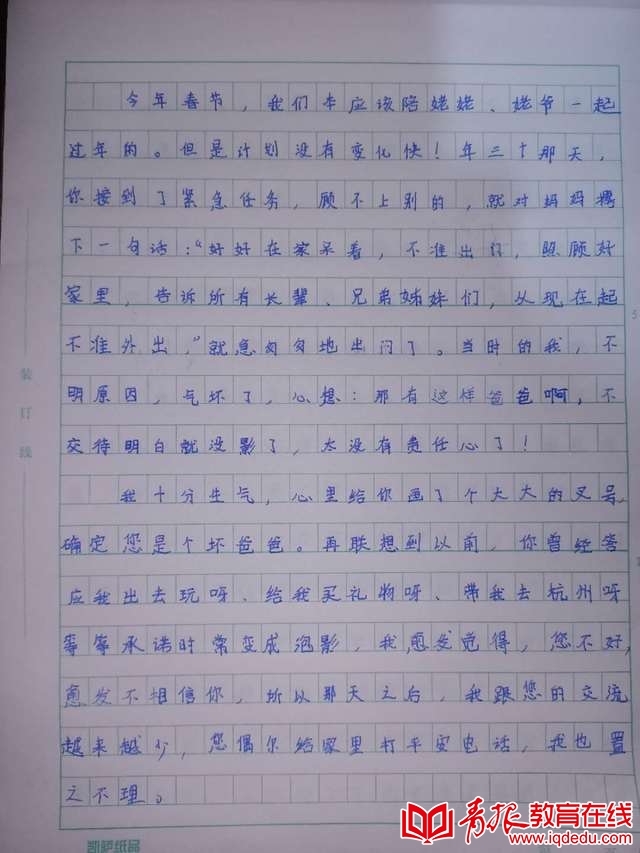 今年春节，我们本应该陪姥姥、姥爷一起
过年的。但是计划没有变化快！年三十那天，
你接到了紧急任务，顾不上别的，就对妈妈撂
下一句话：“好好在家呆着，不准出门，照顾好
家里，告诉所有长辈、兄弟姊妹们，从现在起
不准外出，”就急匆匆地出门了。当时的我，不
明原因，气坏了，心想：那有这样爸爸啊，不
交待明白就没影了，太没有责任心了！
我十分生气，心里给你画了个大大的叉号，
确定您是个坏爸爸。再联想到以前，你曾经答
应我出去玩呀、给我买礼物呀、带我去杭州呀
等等承诺时常变成泡影，我愈发觉得，您不好，
愈发不相信你，所以那天之后，我跟您的交流
越来越少，您偶尔给家里打平安电话，我也置
之不理。
装订线
凯萨纸品
青报教育在线
www.iqdedu.com